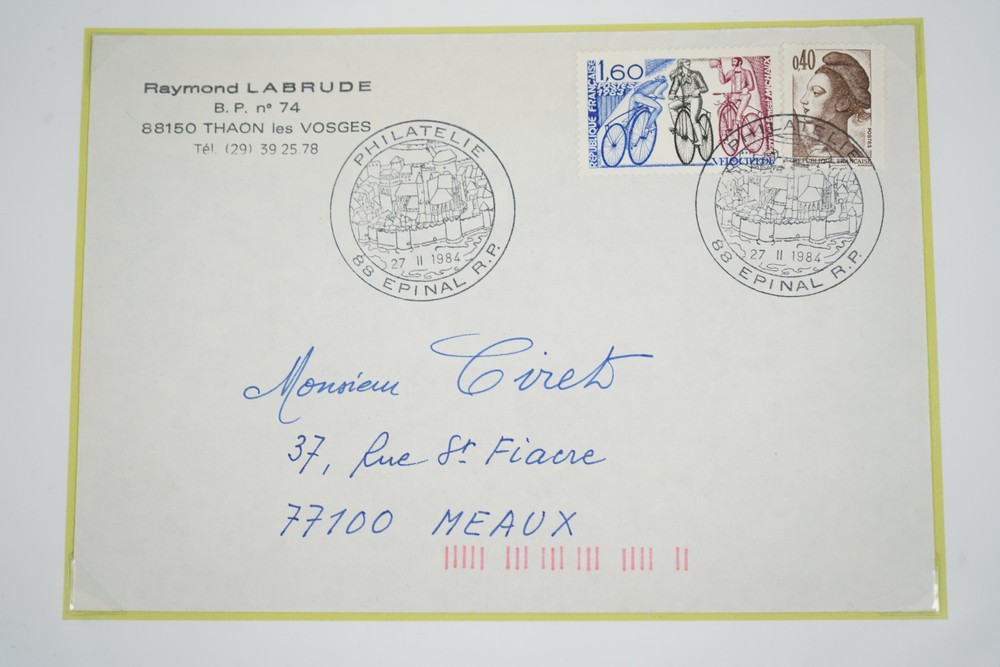 Raymond LABRUDE
B. P. n° 74
88150 THAON les VOSGES
Tél. (29) 39 25 78
RÉPUBLIQUE FRANÇAISE
1,60
POSTES
1983
VÉLOCIPÈDE
0,40
POSTES
RÉPUBLIQUE FRANÇAISE
PHILATELIE
27 II 1984
88 EPINAL R.P.
PHILATELIE
27 II 1984
88 EPINAL R.P.
Monsieur Ciret
37, Rue St Fiacre
77100 MEAUX